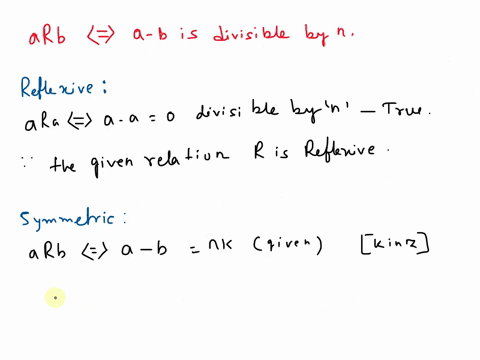 aRb <=> a-b is divisible by n.
Reflexive:
aRa <=> a-a = 0 divisible by 'n' - True.
∵ the given relation R is Reflexive.
Symmetric:
aRb <=> a-b = nk (given) [k in z]